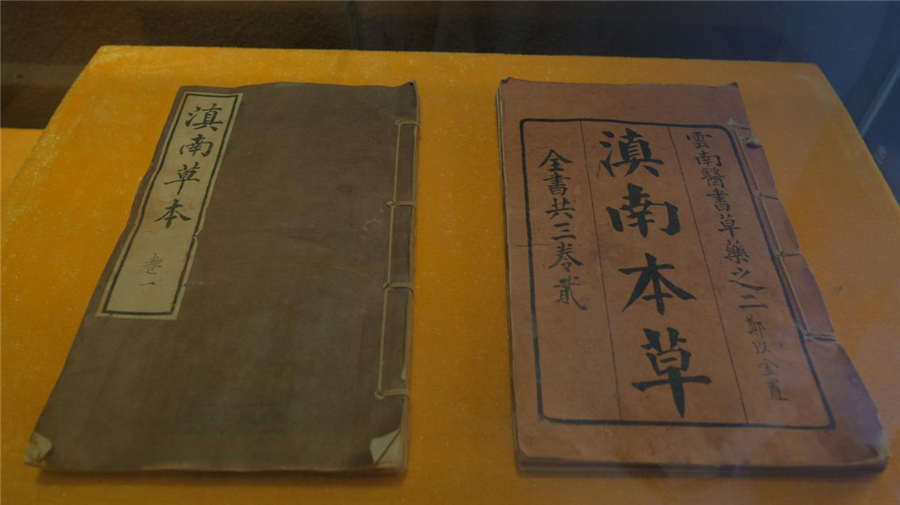 滇南草本
卷一
雲南醫書草藥之二
滇南本草
全書共三卷貳